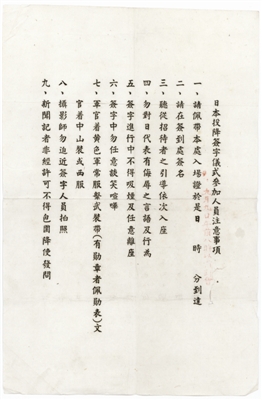 日本投降簽字儀式參加人員注意事項
一、請佩帶本處入場證於是日　時　分到達
二、請在簽到處簽名
三、聽從招待者之引導依次入座
四、勿對日代表有侮辱之言語及行為
五、簽字進行中不得吸煙及任意離座
六、簽字中勿任意談笑喧嘩
七、軍官着黃色軍常服繫武裝帶(有勛章者佩勛表)文
官着中山裝或西服
八、攝影師勿迫近簽字人員拍照
九、新聞記者要經許可不得包圍降使發問